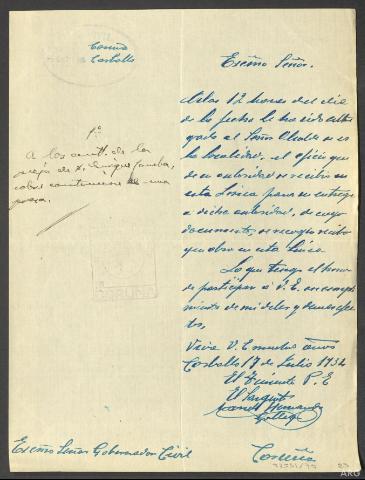 Coruña
Carballo
Excmo Señor.
A las 12 horas del dia
de la fecha le ha sido entre
gado al Señor Alcalde de es
ta localidad, el oficio que
de su autoridad se recibio en
esta Linea para su entrega
a dicha autoridad, de cuyo
documento, se recogio recibo
que obra en esta Linea.
Lo que tengo el honor
de participar a V. E. en cumpli
miento de mi deber y demas efec
tos,
Viva V. E muchos años
Carballo 17 de Julio 1932
El Teniente P. E
El Sargento
Manuel Hernandez
Gallego
1º
A los
de D. Enrique
sobre construccion de una
presa.
CORUÑA
Excmo Señor Gobernador Civil
Coruña
23
ARG